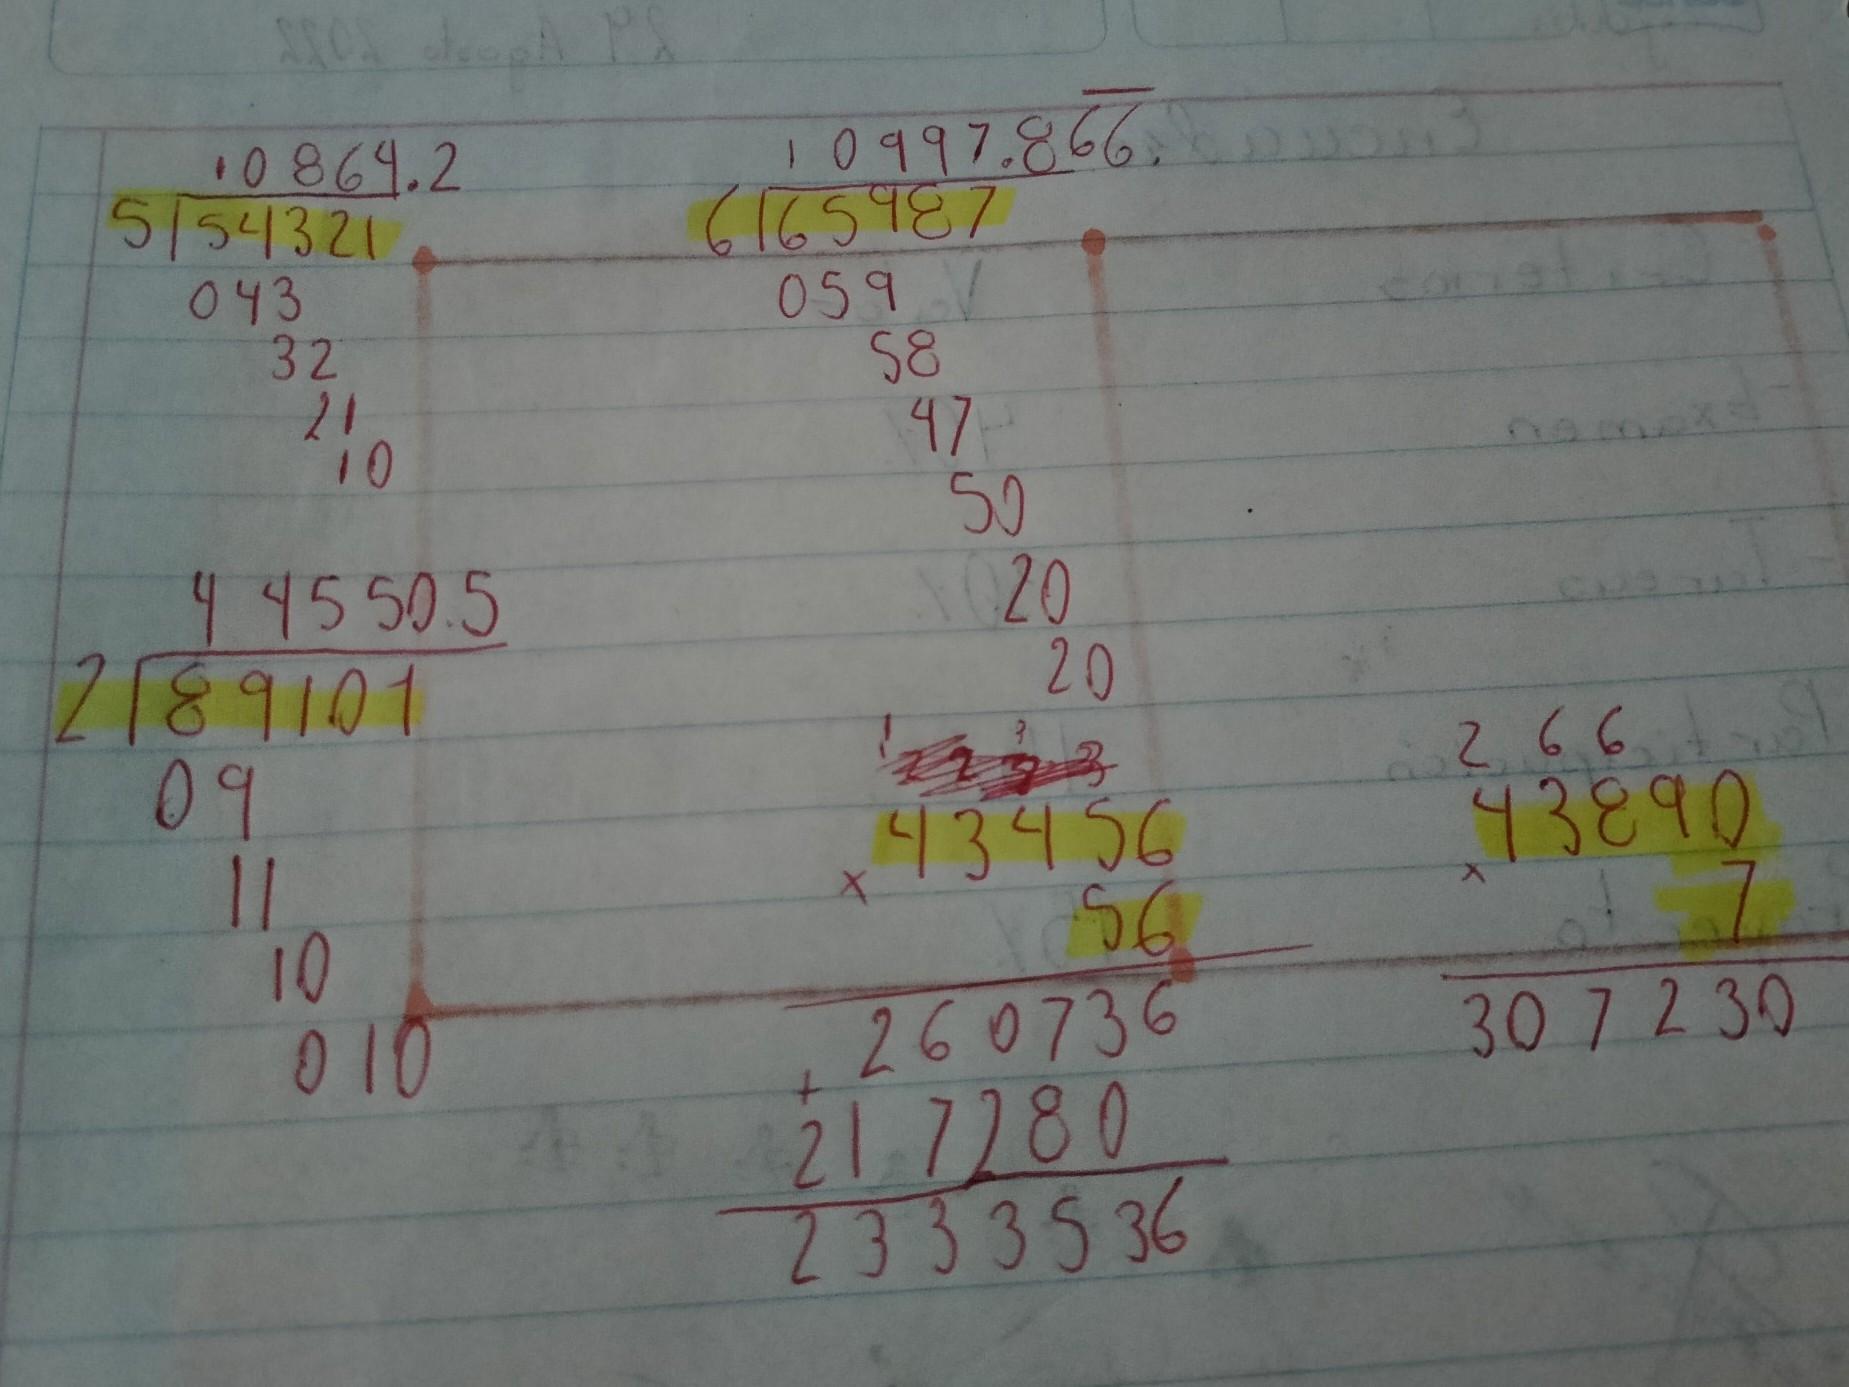 10864.2
5 54321
043
32
21
10
10997.866
6 65987
059
58
47
50
20
20
44550.5
2 89101
09
11
10
010
43456
x 56
260736
+
217280
2333536
2 6 6
43890
x 7
307230